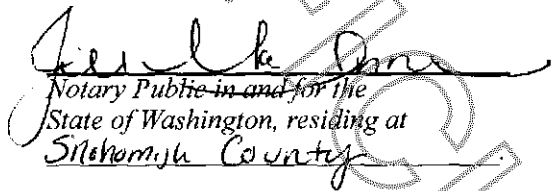 Notary Public in and for the
State of Washington, residing at
Snohomish County